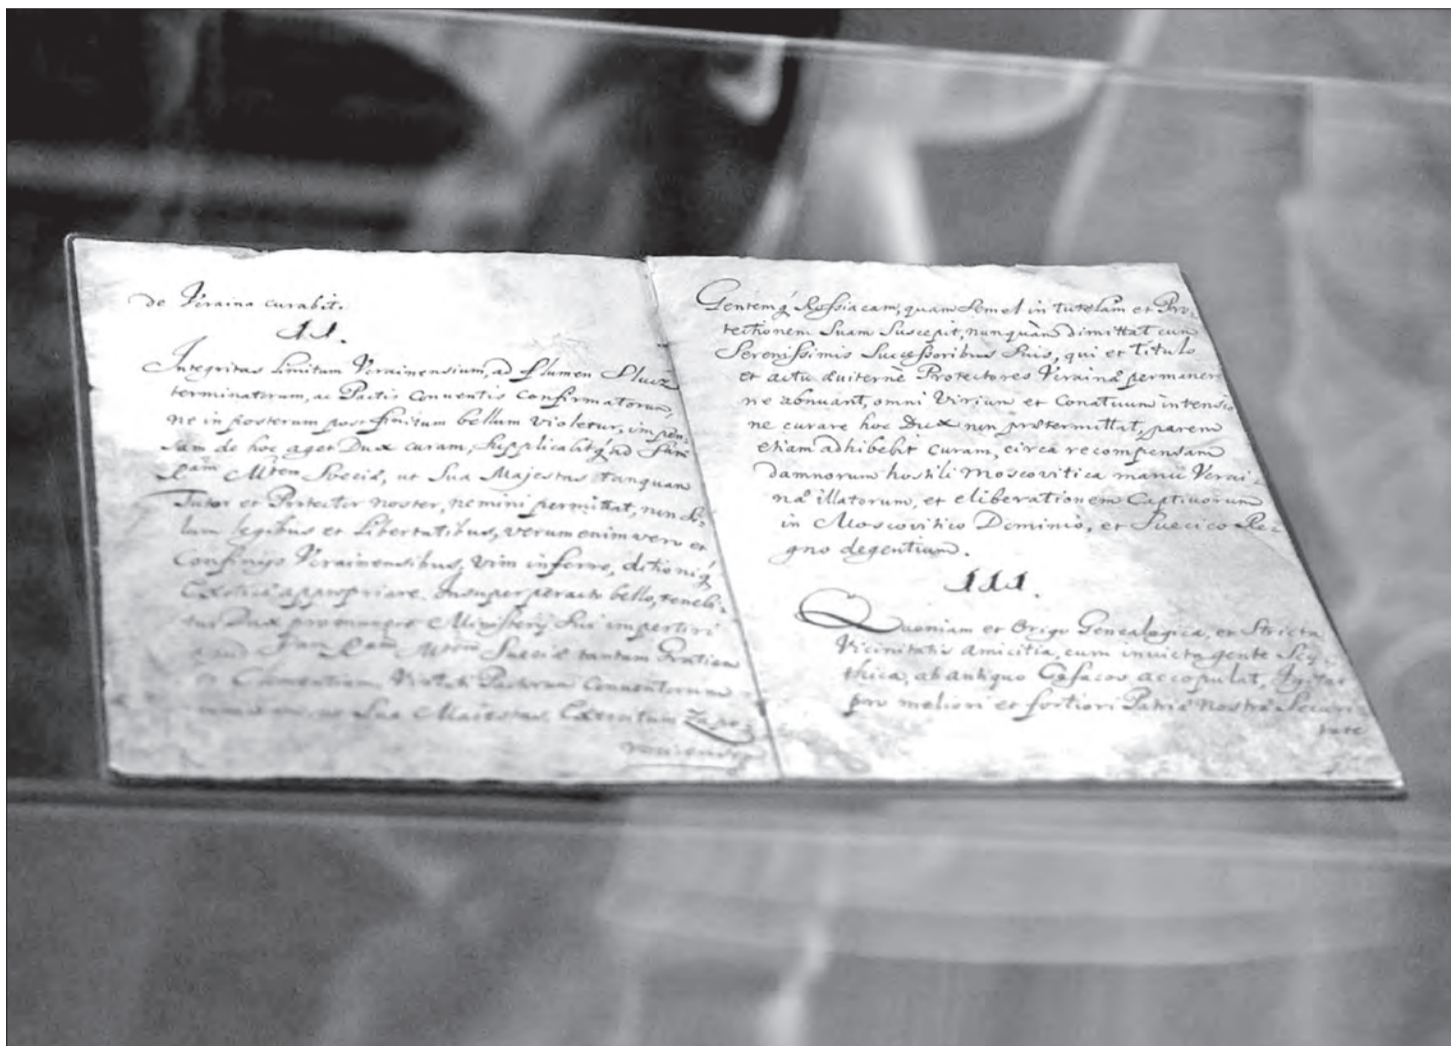 de Ucraina curabit.
II.
Integritas limitum Ucrainensium, ad flumen Slucz
terminatorum, ac Pactis Conventis confirmatorum,
ne in posterum post finitum bellum violetur, impen-
sam de hoc aget Dux curam, supplicabitq́ ad Sam
Ram Mtem Sveciæ, ut Sua Majestas tanquam
Tutor et Protector noster, nemini permittat, non so-
lum legibus et libertatibus, verum enim vero et
Confinijs Ucrainensibus, vim inferre, ditioniq́
Exoticæ appropriare. Insuper peracto bello, tenebi-
tur Dux Ministerij sui impertiri
apud Sam Ram Mtem Sueciæ tantam Gratiam
et Clementiam, Pactorum Conventorum
ut Sua Maiestas, Exercitum Zapo-
roviensem
Gentemq́ Rossiacam, quam semel in tutelam et Pro-
tectionem Suam Suscepit, nunquàm dimittat cum
Serenissimis Successoribus Suis, qui et titulo
et actu æviternè Protectores Ucrainæ permanere
ne abnuant, omni Virium et Conatuum intensio-
ne curare hoc Dux non prætermittat, parem
etiam adhibebit curam, circa recompensam
damnorum hostili Moscovitica manu Ucrai-
næ illatorum, et eliberationem Captivorum
in Moscovitico Dominio, et Suecico Re-
gno degentium.
III.
Quoniam et Origo Genealogica, et Stricta
Vicinitatis amicitia, cum invicta gente Scy-
thica, ab antiquo Cosacos accopulat, Igitur
pro meliori et fortiori Patriæ Nostræ Securi-
tate